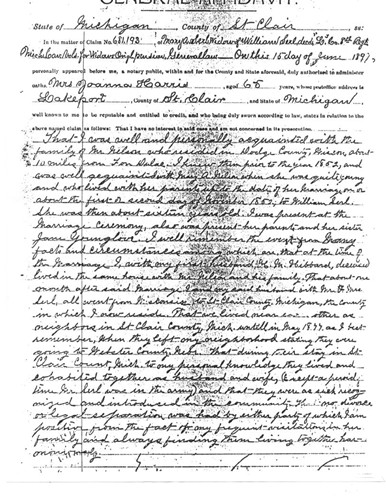 GENERAL AFFIDAVIT.
State of Michigan County of St Clair ss:
In the matter of Claim No. of William Serl
On this 15 day of June 189
personally appeared before me, a notary public, within and for the County and State aforesaid, duly authorized to administer
oaths Mrs Joanna Harris aged 68 years, whose postoffice address is
Lakeport County of St. Clair and State of Michigan
well known to me to be reputable and entitled to credit, and who being duly sworn according to law, states in relation to the
above named claim as follows: That I have no interest in said case and am not concerned in its prosecution.
That I was well and personally acquainted with the
family of Mr. who resided in County Wiscon, about
10 miles from Fon I knew them prior to the year 1852, and
was well acquainted with Mary A. when she was quite young
and who lived with her parents until the date of her marriage, on or
about the first or second day of 1852, to William Serl.
She was then about sixteen years old. I was present at the
Marriage Ceremony, also was present her parents and her sister
Jane I well remember the event from many
facts and circumstances among which are, that at the time of
the Marriage I with my first husband Hibbard, deceased
lived in the same house with Mr. and his family. That about one
month after said Marriage I and my said husband with Mr. & Mrs
Serl, all went from Wisconsin to St Clair County, Michigan, the County
in which I now reside. That we lived near each other as
neighbors in St Clair County, Mich. until in May 1877, as I best
remember, When they left my neighborhood stating they were
going to Webster County, Nebr. That during their stay in St
Clair County, Mich to my personal knowledge they lived and
cohabited together as Husband and wife, (except a period
time Mr Serl was in the army) and that they were as such recog-
nized and introduced in the community. That no divorce
or legal separation was had by either party of which I am
positive from the fact of my frequent visitations in her
family and always finding them living together har-
moniously